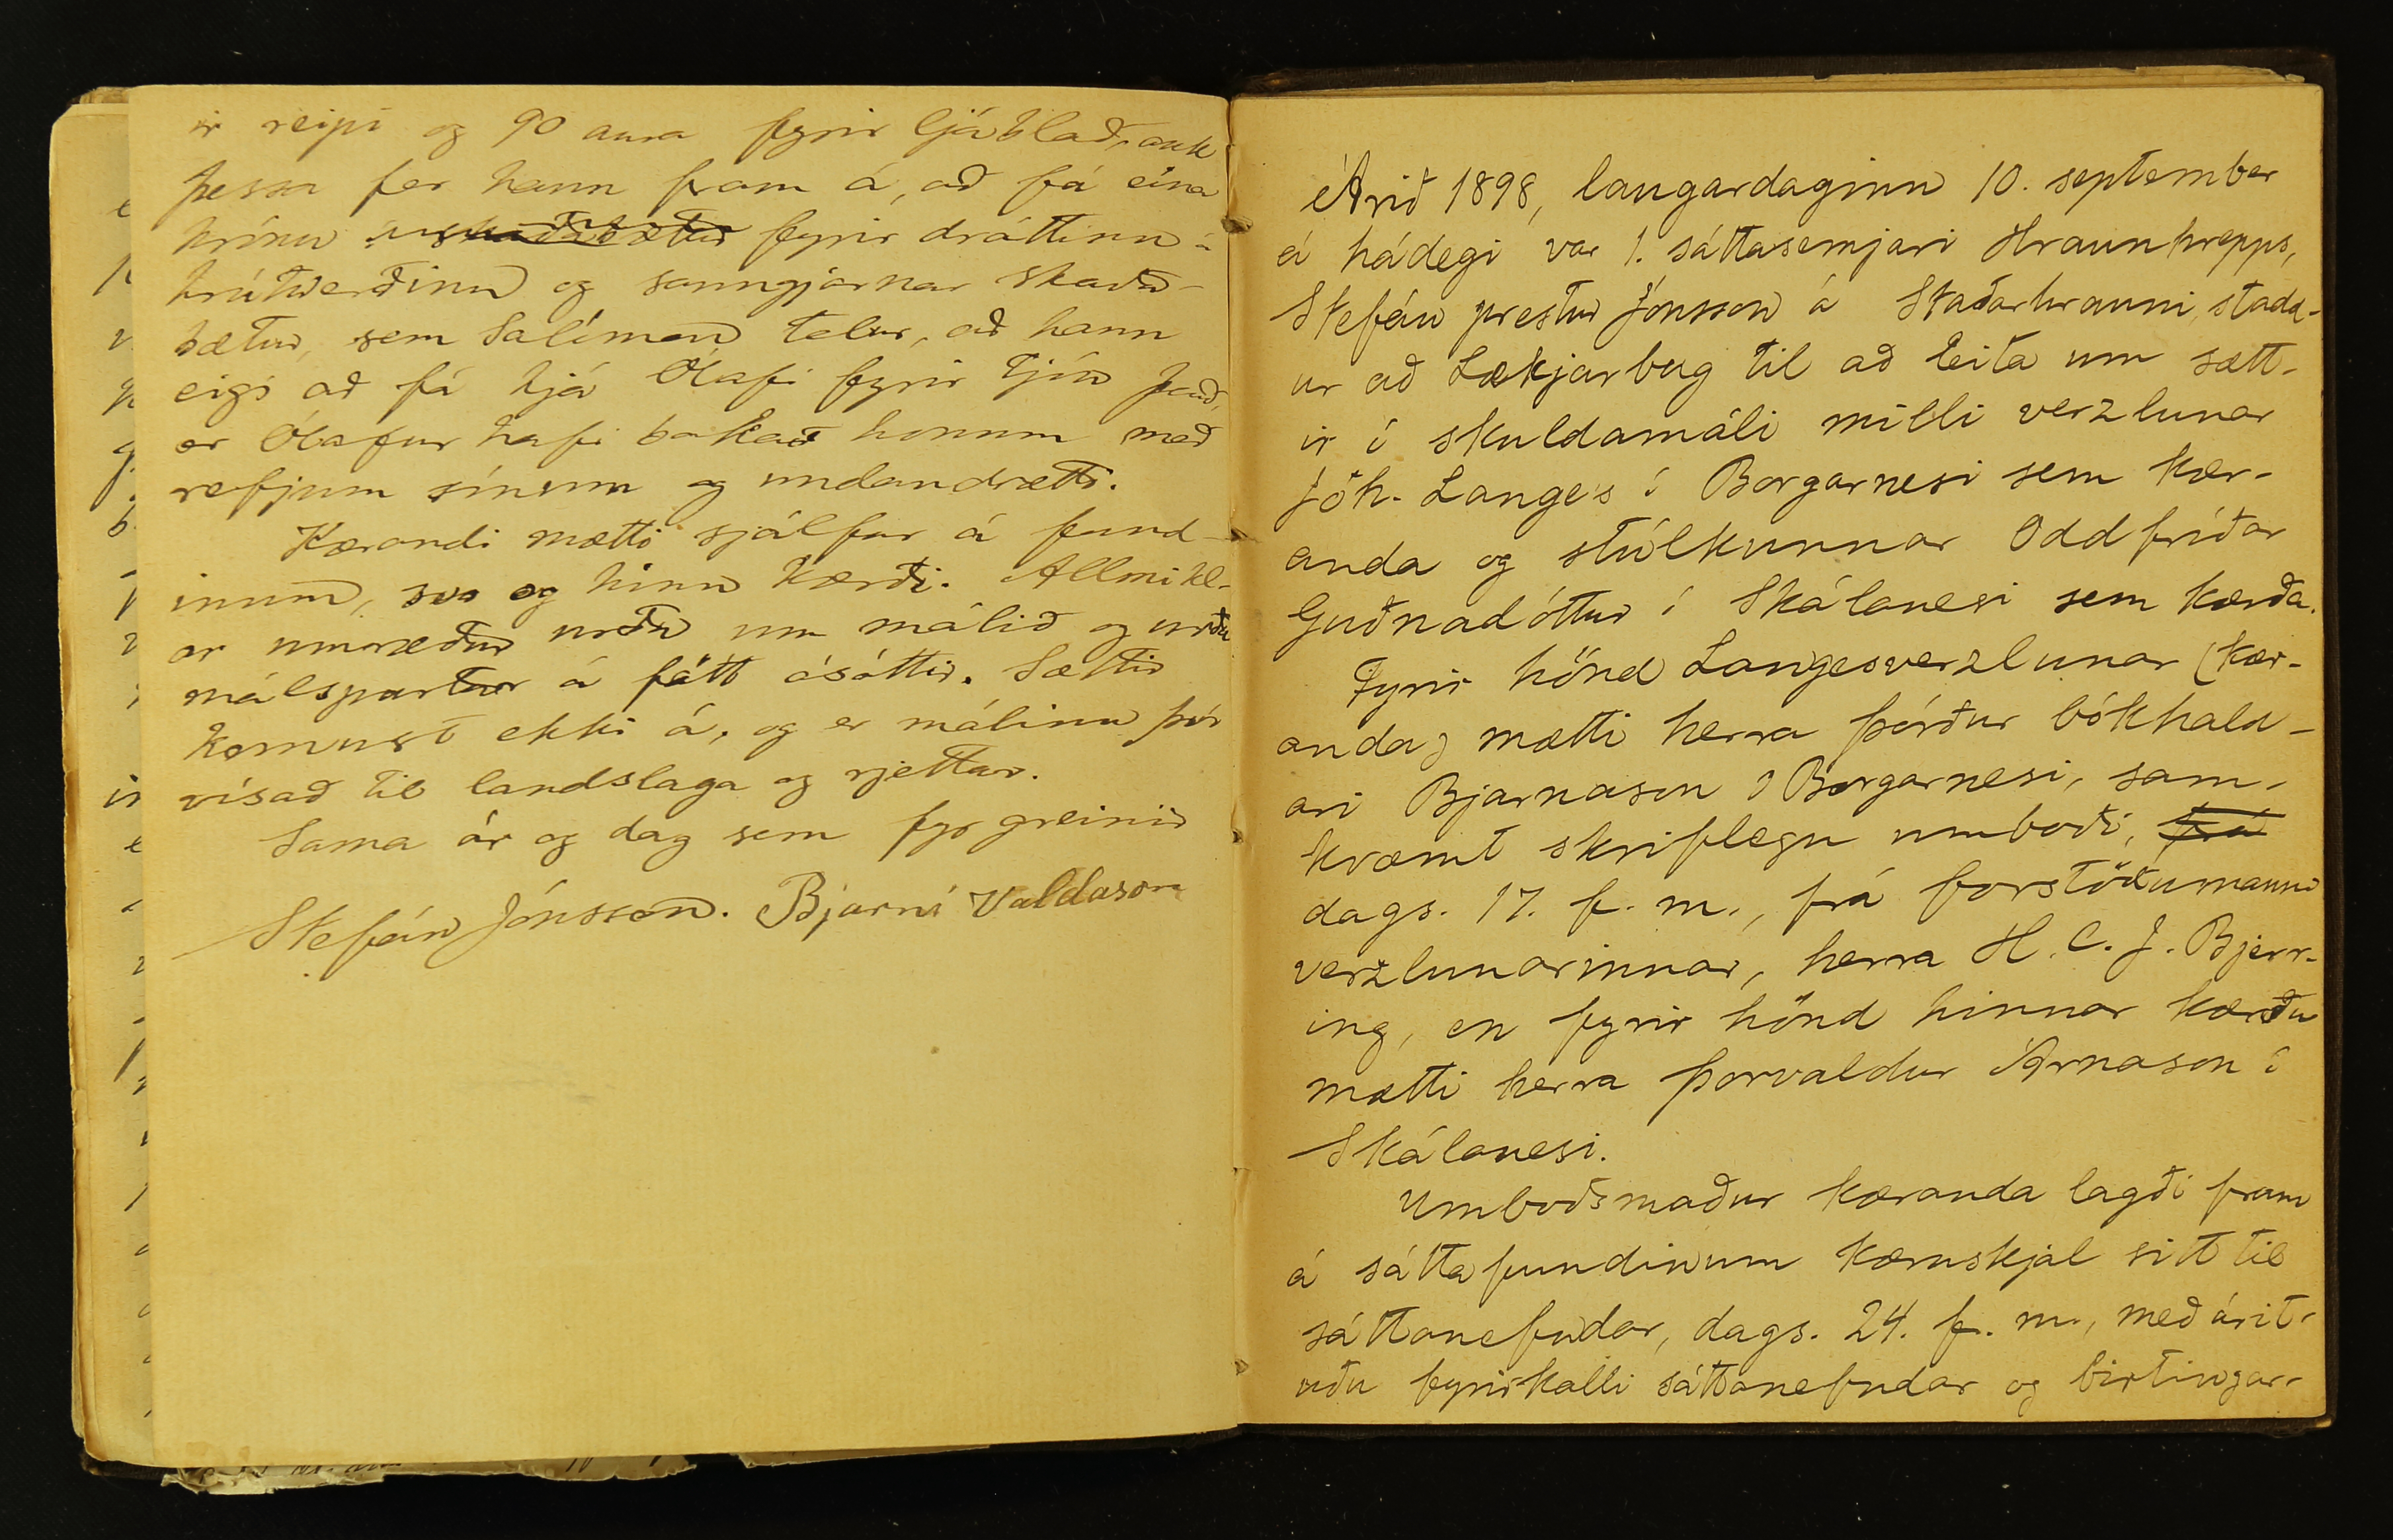 ir reipi og 90 aura fyrir ljáblað, auk
þessa fer hann fram á, að fá eina
krónu fyrir dráttinn á
hrútverðinu og sanngjarnar skaða-
bætur, sem Salómon telur, að hann
eigi að fá hjá Ólafi fyrir tjón það,
er Ólafur hafi bakað honum með
refjum sínum og undandrætti.
Kærandi mætti sjálfur á fund-
inum, svo og hinn kærði. Allmikl-
ar umræður urðu um málið og urðu
málspartar á fátt ásáttir. Sættir
komust ekki á, og er málinu því
vísað til landslaga og rjettar.
Sama ár og dag sem fyr greinir
Stefán Jónsson. Bjarni Valdason
Árið 1898, laugardaginn 10. september
á hádegi var 1. sáttasemjari Hraunhrepps,
Stefán prestur Jónsson á Staðarhrauni, stadd-
ur að Lækjarbug til að leita um sætt-
ir í skuldamáli milli verzlunar
Jóh. Lange's í Borgarnesi sem kær-
anda og stúlkunnar Oddfríðar
Guðnadóttur í Skálanesi sem kærða.
Fyrir hönd Langesverzlunar (kær-
anda) mætti herra Þórður bókhald-
ari Bjarnason í Borgarnesi, sam-
kvæmt skriflegu umboði, frá
dags. 17. f. m., frá forstöðumanni
verzlunarinnar, herra H. C. J. Bjerr-
ing, en fyrir hönd hinnar kærðu
mætti herra Þorvaldur Árnason í
Skálanesi.
Umboðsmaður kæranda lagði fram
á sáttafundinum kæruskjal sitt til
sáttanefndar, dags. 24. f. m., með árit-
uðu fyrirkalli sáttanefndar og birtingar-